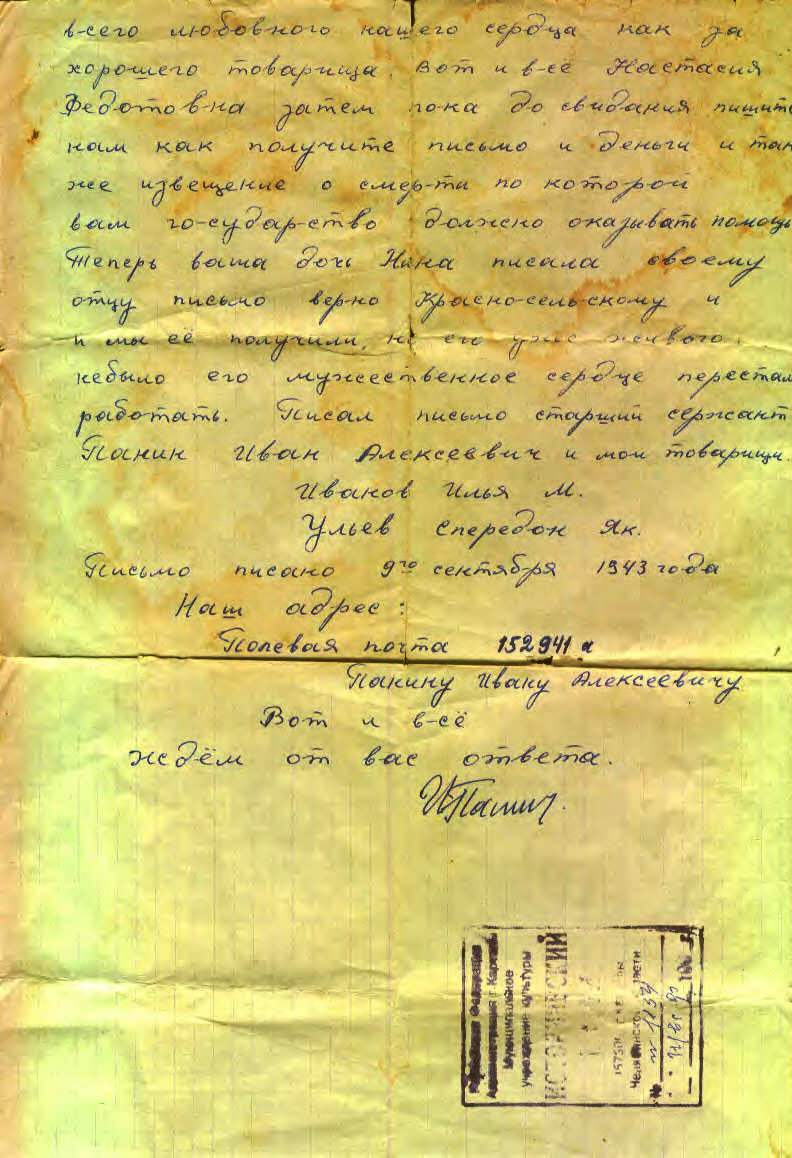 в-сего любовного нашего сердца как за
хорошего товарища. Вот и в-сё Настасия
Федотов-на затем по-ка до свидания пишите
нам как получите письмо и деньги и так
же извещение о смер-ти по кото-рой
вам го-судар-ство должно оказывать помощь
Теперь ваша дочь Нина писала своему
отцу письмо верно Красно-сель-скому и
и мы её получили, но его уже живого
небыло его мужественное сердце перестало
работать. Писал письмо старший сержант
Панин Иван Алексеевич и мои товарищи.
Иванов Илья М.
Ульев Спередон Як.
Письмо писано 9го сентября 1943 года
Наш адрес:
Полевая почта 152941 а
Панину Ивану Алексеевичу
Вот и в-сё
ждём от вас ответа.
ИПанин.
Российская Федерация
Администрация г. Карталы
Муниципальное
учреждение культуры
ИСТОРИЧЕСКИЙ
Челябинской области
№